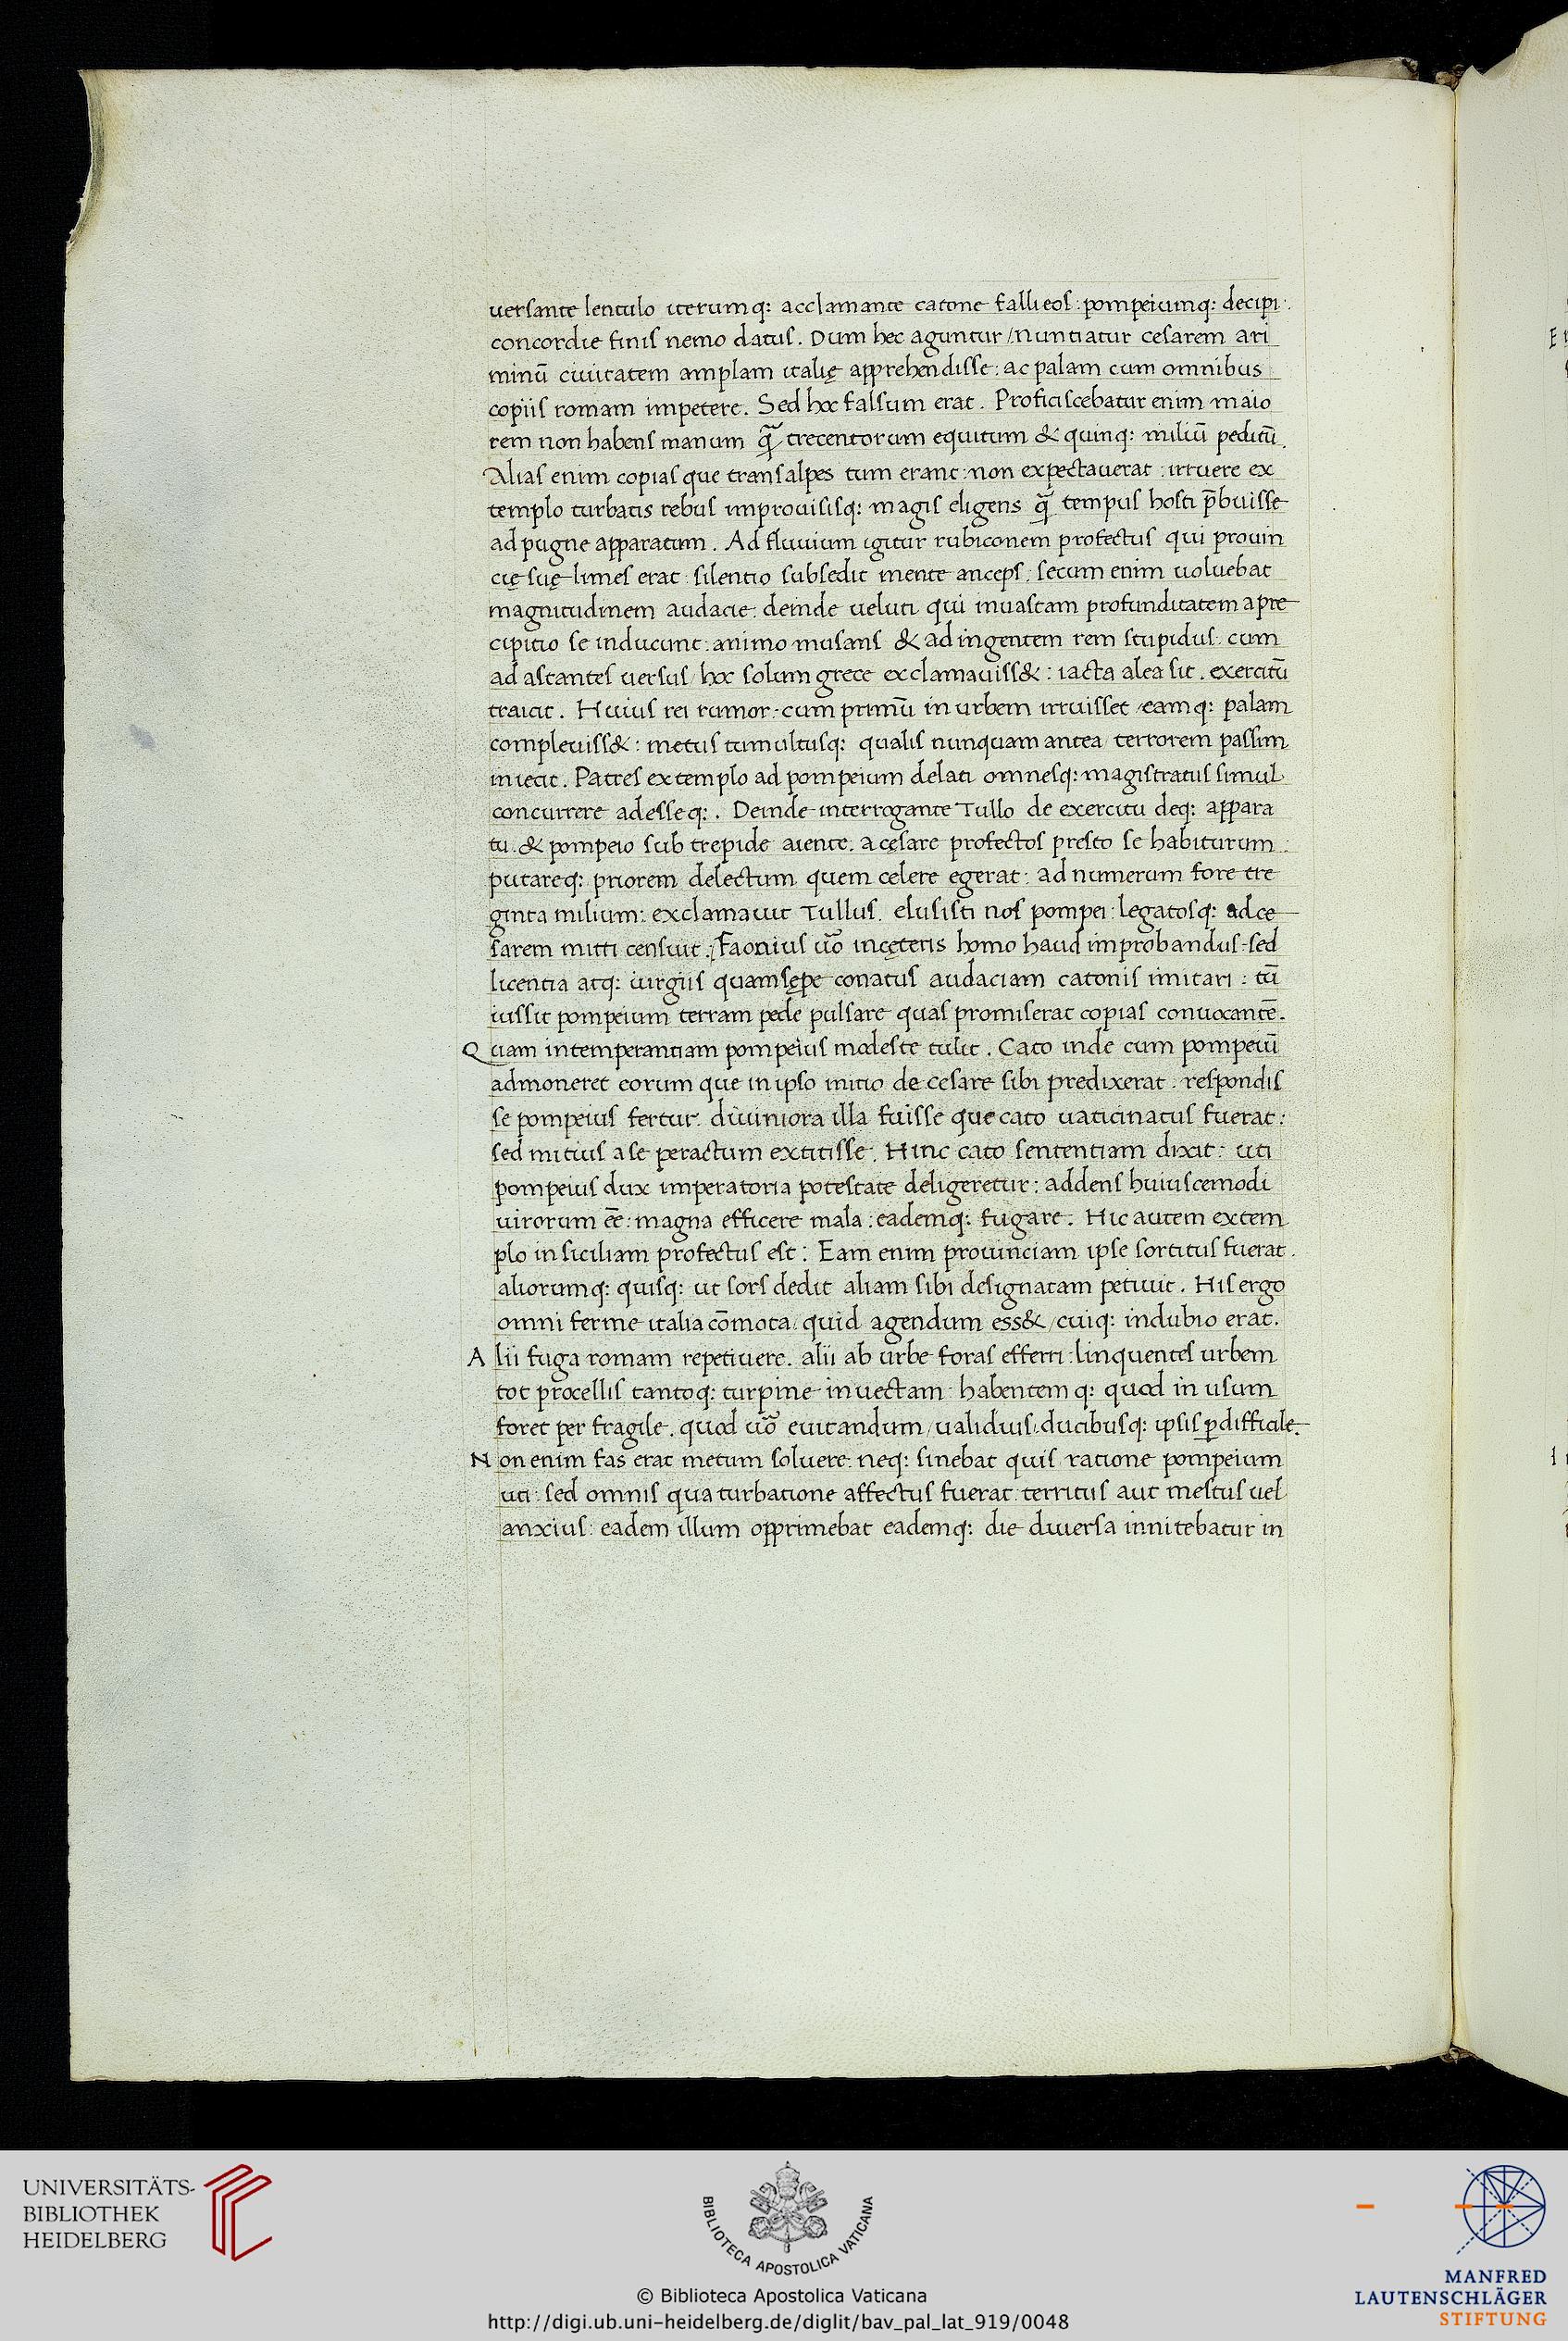 uersante lentulo iterumq: acclamante catone falli eos: pompeiumq: decipi.
concordie finis nemo datus. Dum hec aguntur / Nuntiatur cesarem ari
minū ciuitatem amplam italię apprehendisse: ac palam cum omnibus
copiis romam impetere. Sed hoc falsum erat. Proficiscebatur enim maio
rem non habens manum q̃ trecentorum equitum & quinq: miliū peditū.
Alias enim copias que trans alpes tum erant: non expectauerat: irruere ex
templo turbatis rebus improuisisq: magis eligens q̃ tempus hosti p̄buisse
ad pugne apparatum. Ad fluuium igitur rubiconem profectus qui prouin
cię suę limes erat: silentio subsedit mente anceps: secum enim uoluebat
magnitudinem audacie: deinde ueluti qui in uastam profunditatem a pre
cipitio se inducunt: animo musans & ad ingentem rem stupidus: cum
ad astantes uersus / hoc solum grece exclamauiss&: iacta alea sit. exercitū
traicit. Huius rei rumor: cum primū in urbem irruisset / eamq: palam
compleuiss&: metus tumultusq: qualis nunquam antea / terrorem passim
iniecit. Patres extemplo ad pompeium delati omnesq: magistratus simul
concurrere adesseq:. Deinde interrogante Tullo de exercitu deq: appara
tu. & pompeio sub trepide aiente. a cęsare profectos presto se habiturum.
putareq: priorem delectum quem celere egerat: ad numerum fore tre
ginta milium: exclamauit Tullus. elusisti nos pompei: legatosq: ad ce
sarem mitti censuit: Faonius ũo in cęteris homo haud improbandus: sed
licentia atq: iurgiis quam sępe conatus audaciam catonis imitari: tū
iussit pompeium terram pede pulsare quas promiserat copias conuocantē.
Quam intemperantiam pompeius modeste tulit. Cato inde cum pompeiū
admoneret eorum que in ipso initio de cesare sibi predixerat. respondis
se pompeius fertur. diuiniora illa fuisse que cato uaticinatus fuerat:
sed mitius a se peractum extitisse. Hinc cato sententiam dixit: uti
pompeius dux imperatoria potestate deligeretur: addens huiuscemodi
uirorum ēe: magna efficere mala: eademq: fugare. Hic autem extem
plo in siciliam profectus est: Eam enim prouinciam ipse sortitus fuerat.
aliorumq: quisq: ut sors dedit aliam sibi designatam petiuit. His ergo
omni ferme italia cōmota: quid agendum ess& / cuiq: in dubio erat.
Alii fuga romam repetiuere. alii ab urbe foras efferri: linquentes urbem
tot procellis tantoq: turpine inuectam: habentemq: quod in usum
foret per fragile. quod ũo euitandum / ualidius: ducibusq: ipsis ꝑdifficile.
Non enim fas erat metum soluere: neq: sinebat quis ratione pompeium
uti: sed omnis qua turbatione affectus fuerat: territus aut mestus uel
anxius: eadem illum opprimebat eademq: die diuersa innitebatur in
UNIVERSITÄTS-
BIBLIOTHEK
HEIDELBERG
BIBLIOTECA APOSTOLICA VATICANA
© Biblioteca Apostolica Vaticana
http://digi.ub.uni-heidelberg.de/diglit/bav_pal_lat_919/0048
MANFRED
LAUTENSCHLÄGER
STIFTUNG